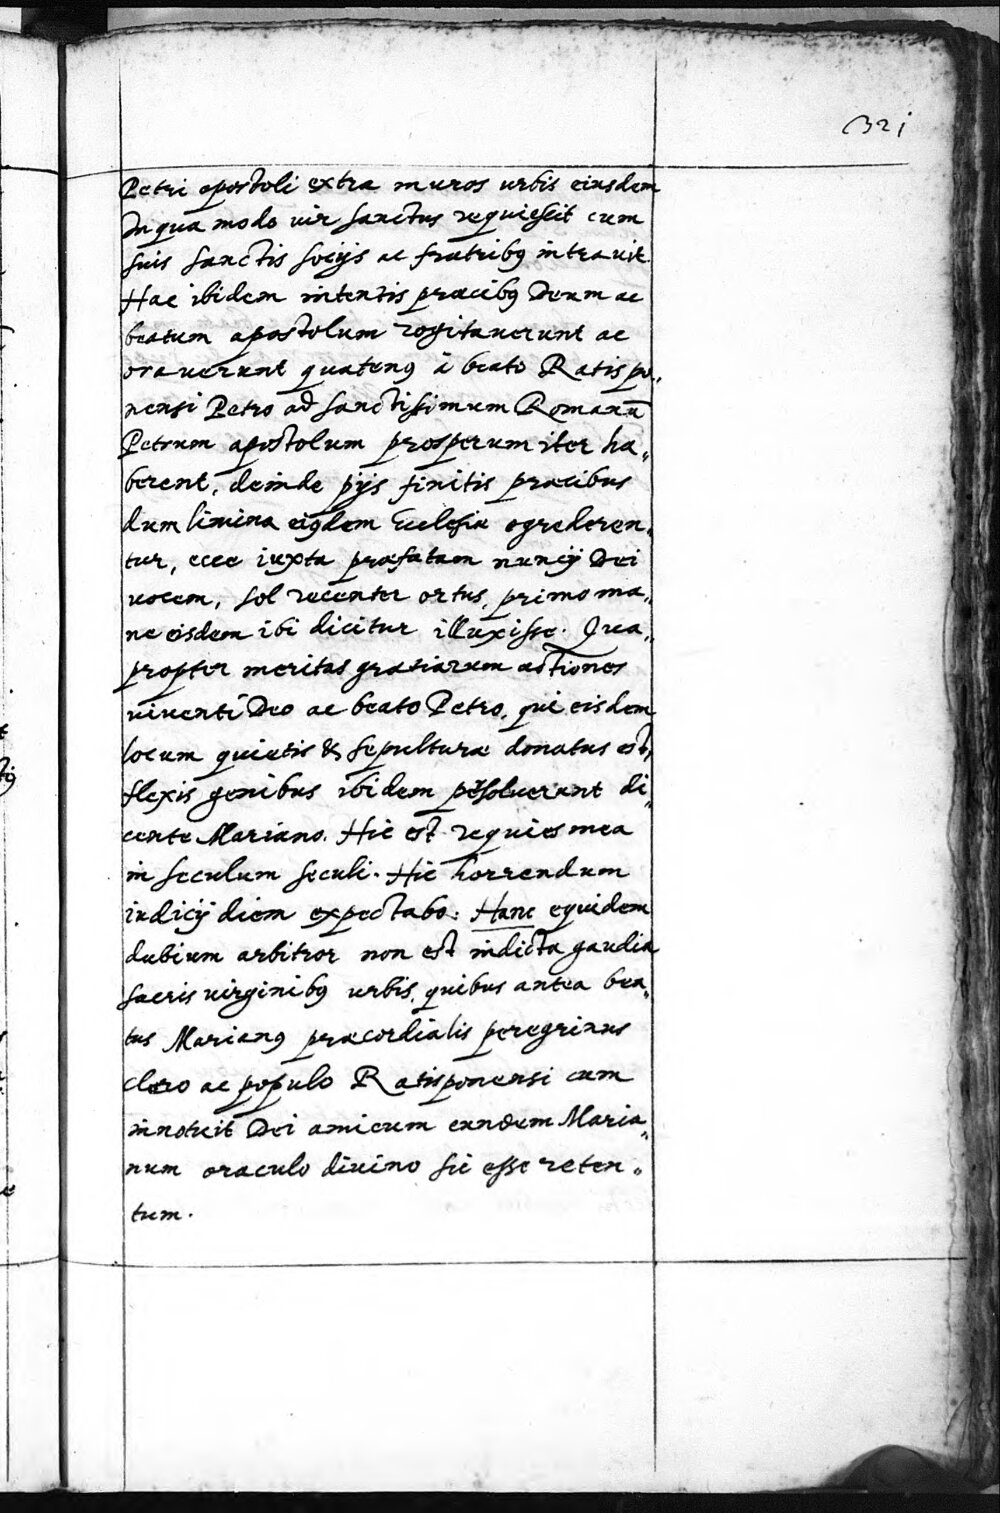 321
Petri apostoli extra muros urbis eiusdem
In qua modo vir sanctus requiescit cum
suis sanctis socijs ac fratribꝰ intrauit.
Hac ibidem intentis præcibꝰ Deum ac
beatum apostolum rogitauerunt ac
orauerunt quatenꝰ à beato Ratispo„
nensi Petro ad sanctissimum Romanū
Petrum apostolum prosperum iter ha„
berent, deinde pijs finitis præcibus
dum limina eiꝰdem Ecclesiæ egrederen„
tur, ecce iuxta præfatam nuncij Dei
uocem, sol recenter ortus, primo ma„
ne eisdem ibi dicitur illuxisse. Qua„
propter meritas gratiarum actiones
uiuenti Deo ac beato Petro, qui eisdem
locum quietis & sepulturæ donatus est,
flexis genibus ibidem psoluerunt di„
cente Mariano. Hic est requies mea
in seculum seculi. Hic horrendum
iudicij diem expectabo: Hanc equidem
dubium arbitror non est indicta gaudia
sacris uirginibꝰ urbis, quibus antea bea„
tus Marianꝰ præcordialis peregrinus
clero ac populo Ratisponensi cum
innotuit Dei amicum eundem Maria„
num oraculo diuino sic esse reten„
tum.